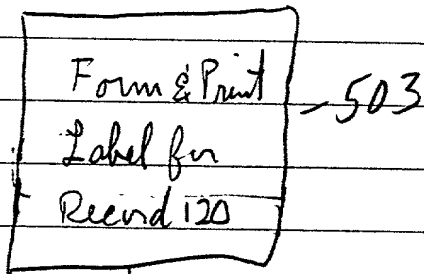 Form & Print
Label for
Record 120
- 503